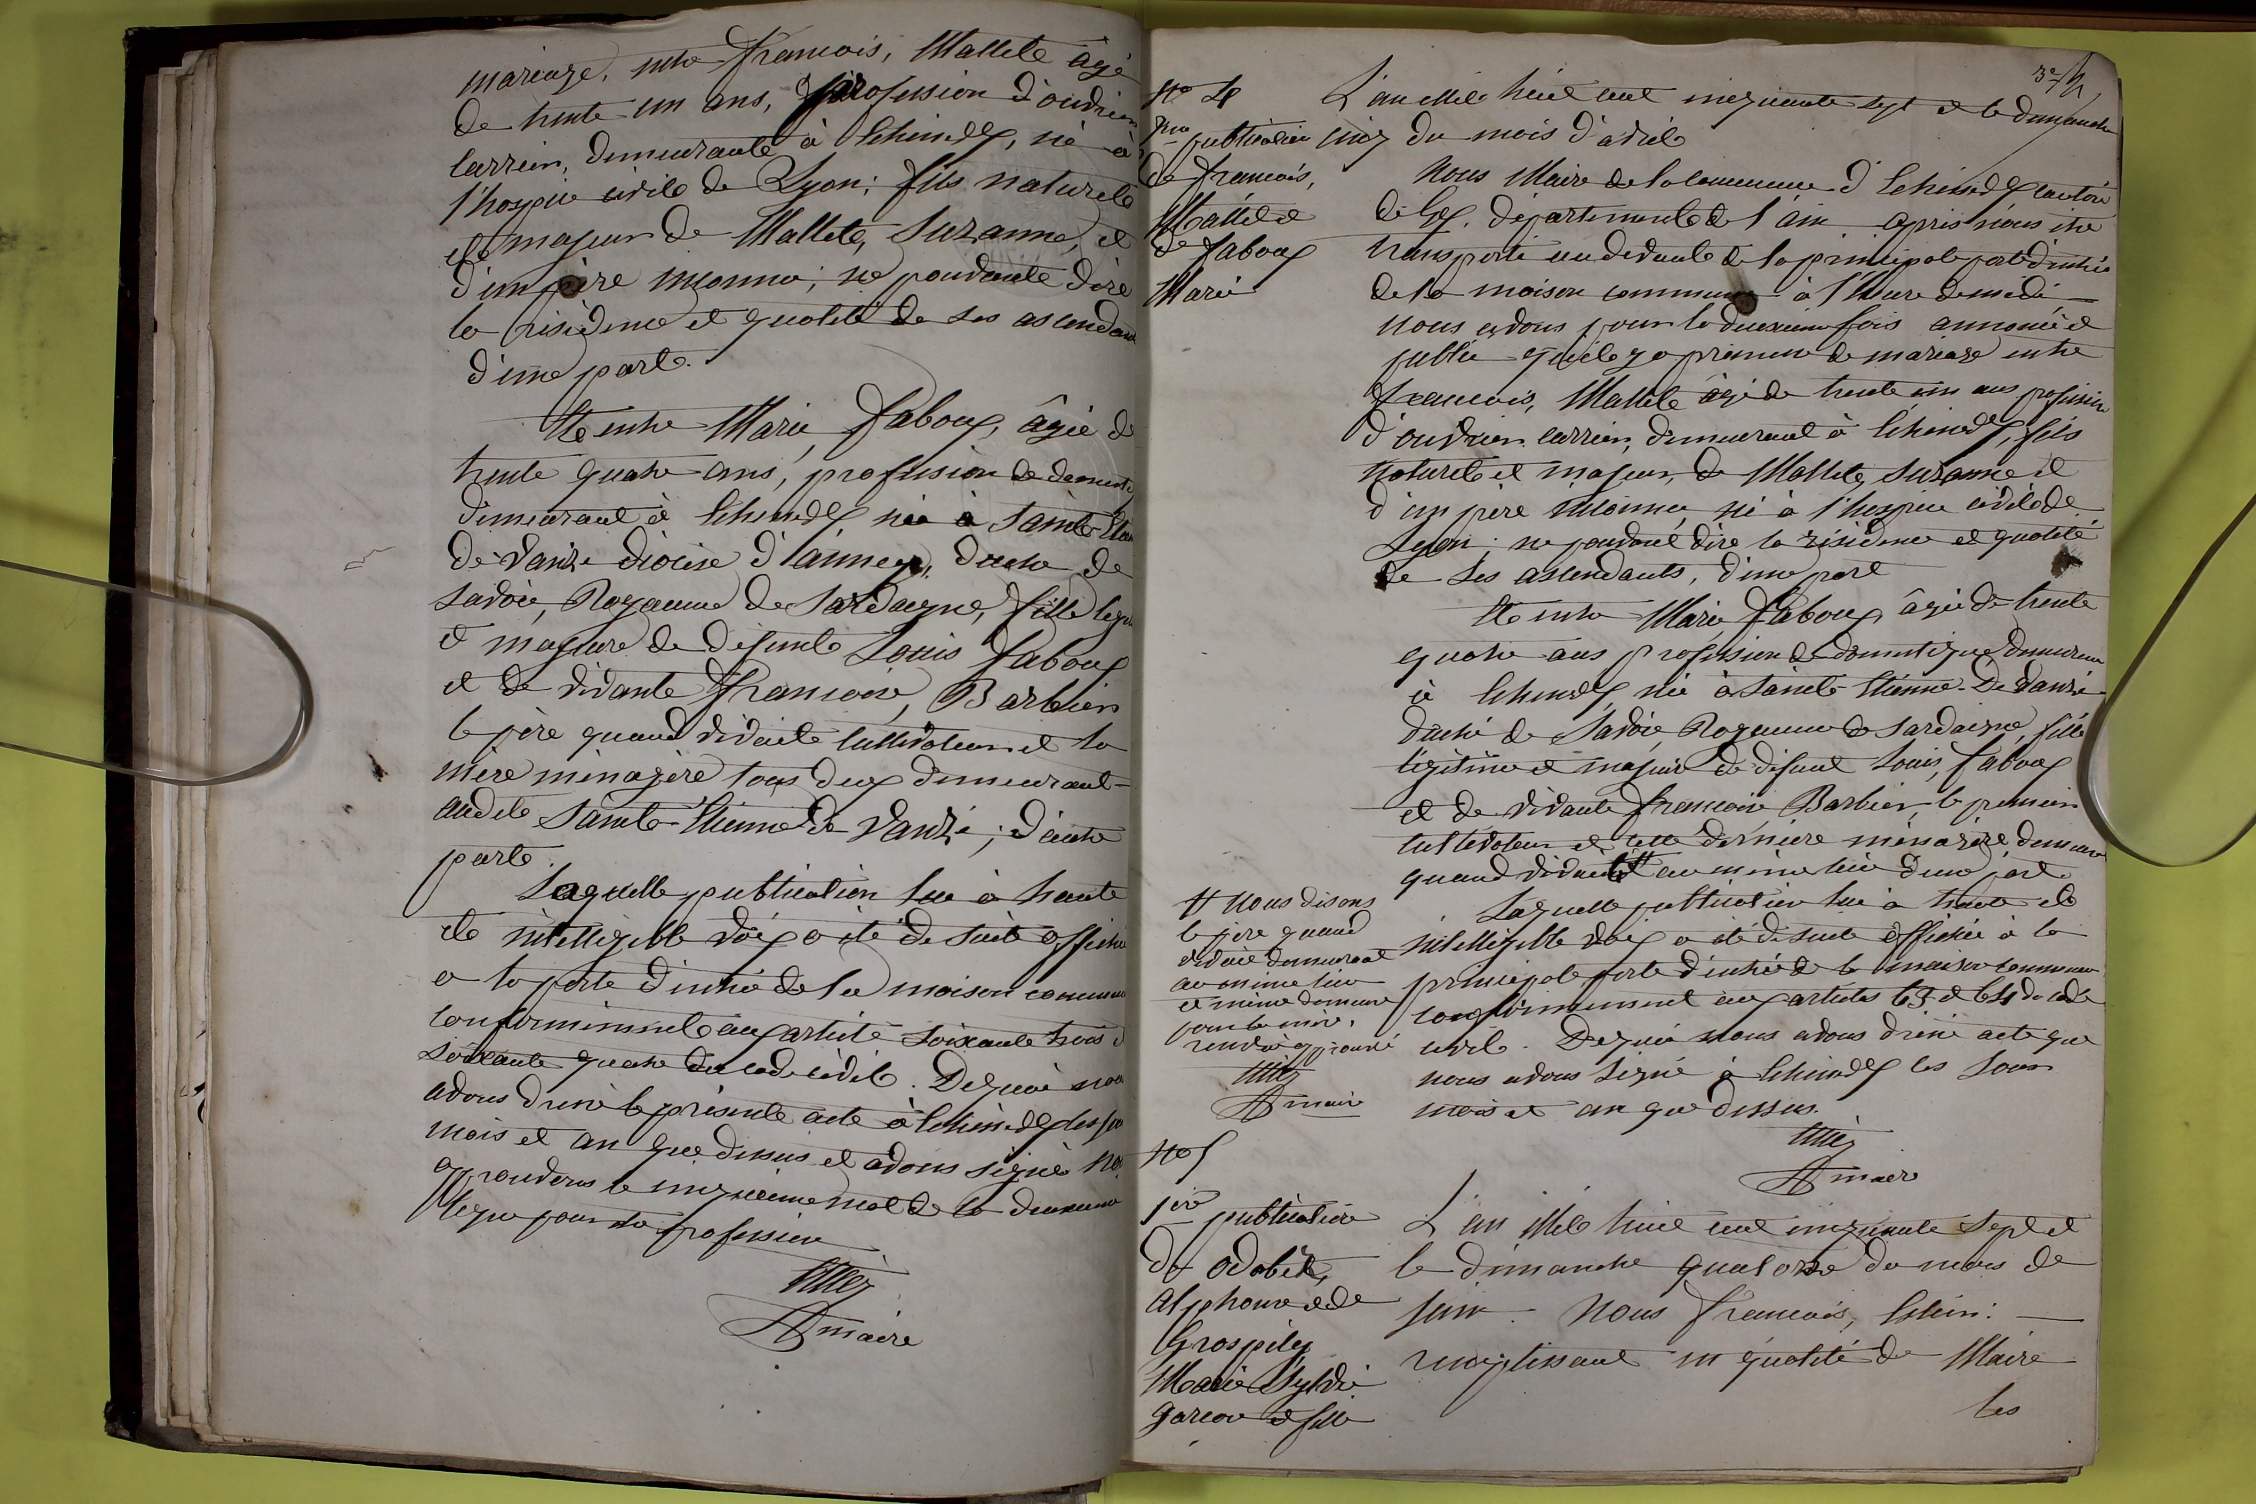 mariage, entre François, Mallete âgé
de trente un ans, profession d'ouvrier
carrier, demeurante à Echenex, né à
l'hospice civile de Lyon; fils naturele
et majeur de Mallete, Suzanne, et
d'un père inconnu; ne pouvante dire
la résidence et qualité de ses ascendants
d'une part.
Et entre Marie Faboux, âgée de
trente quatre ans, profession de
demeurant à Echenex née à Sainte
de Vanze diocèse d'annecy, duché de
Savoie, Royaume de Sardaigne, fille
et majeure de défunte Louis Faboux
et de vivante Françoise, Barbier
le père quand vivait cultivateur et la
mère ménagère tous deux demeurant
audite Sainte Etienne de Vanzé; d'autre
parte.
Laquelle publication lue à haute
et intelligible voix a été de suite
a la porte d'entrée de la maison commune
conforménment aux article soixante trois
soixante quatre du code civil. De quoi nous
avons dressé le présente acte à Echenex
mois et an que dessus et avons signé
approuvons le cinquième mot de la deuxième
ligne pour profession
maire
3e
No 4
publication
de François,
Mallete et
de Faboux
Marie
L'an mile huit cent cinquante sept et le dimanche
cinq du mois d'avril
Nous Maire de la commune d'Echenex canton
de Gex, département de l'ain après nous être
transporté au devante de la principale porte d'entrée
de la maison commune à l'heure de midi
nous avons pour la deuxième fois annoncé et
publié qu'il y a promesse de mariage entre
François, Mallete âgé de trente un ans profession
d'ouvrier carrier, demeurant à Echenex, fils
naturele et majeur, de Mallete, Suzanne et
d'un père inconnu, né à l'hospice civile de
Lyon; ne pouvant dire la résidence et qualité
de ses ascendants, d'une part
Et entre Marie Faboux âgée de trente
quatre ans profession de domestique demeurant
à Echenex, née à Sainte Etienne De Vanzé
duché de Savoie, Royaume de Sardaigne, fille
légitime et majeure de défunt Louis, Faboux
et de vivante Françoise Barbier, le premier
cultivateur et cette dernière ménagère
quand vivait au même lieu d'une part
Laquelle publication lue à haute et
intelligible voix a été de suite affichée à la
principale porte d'entrée de la maison commune
conformément aux articles 63 et 64 du code
civil. De quoi nous avons dressé acte que
nous avons signé à Echenex les jour
mois et an que dessus.
maire
Nous disons
le père quand
vivait demeurant
au même lieu
et même demeure
pour la mère.
renvoi approuvé
maire
No 5
1ère publication
De Odobet,
Alphonse et de
Grospiley
Marie Sylvie
garçon et fille
L'an mile huit cent cinquante sept et
le dimanche quatorze du mois de
juin. Nous François,
remplissant en qualité de Maire
les